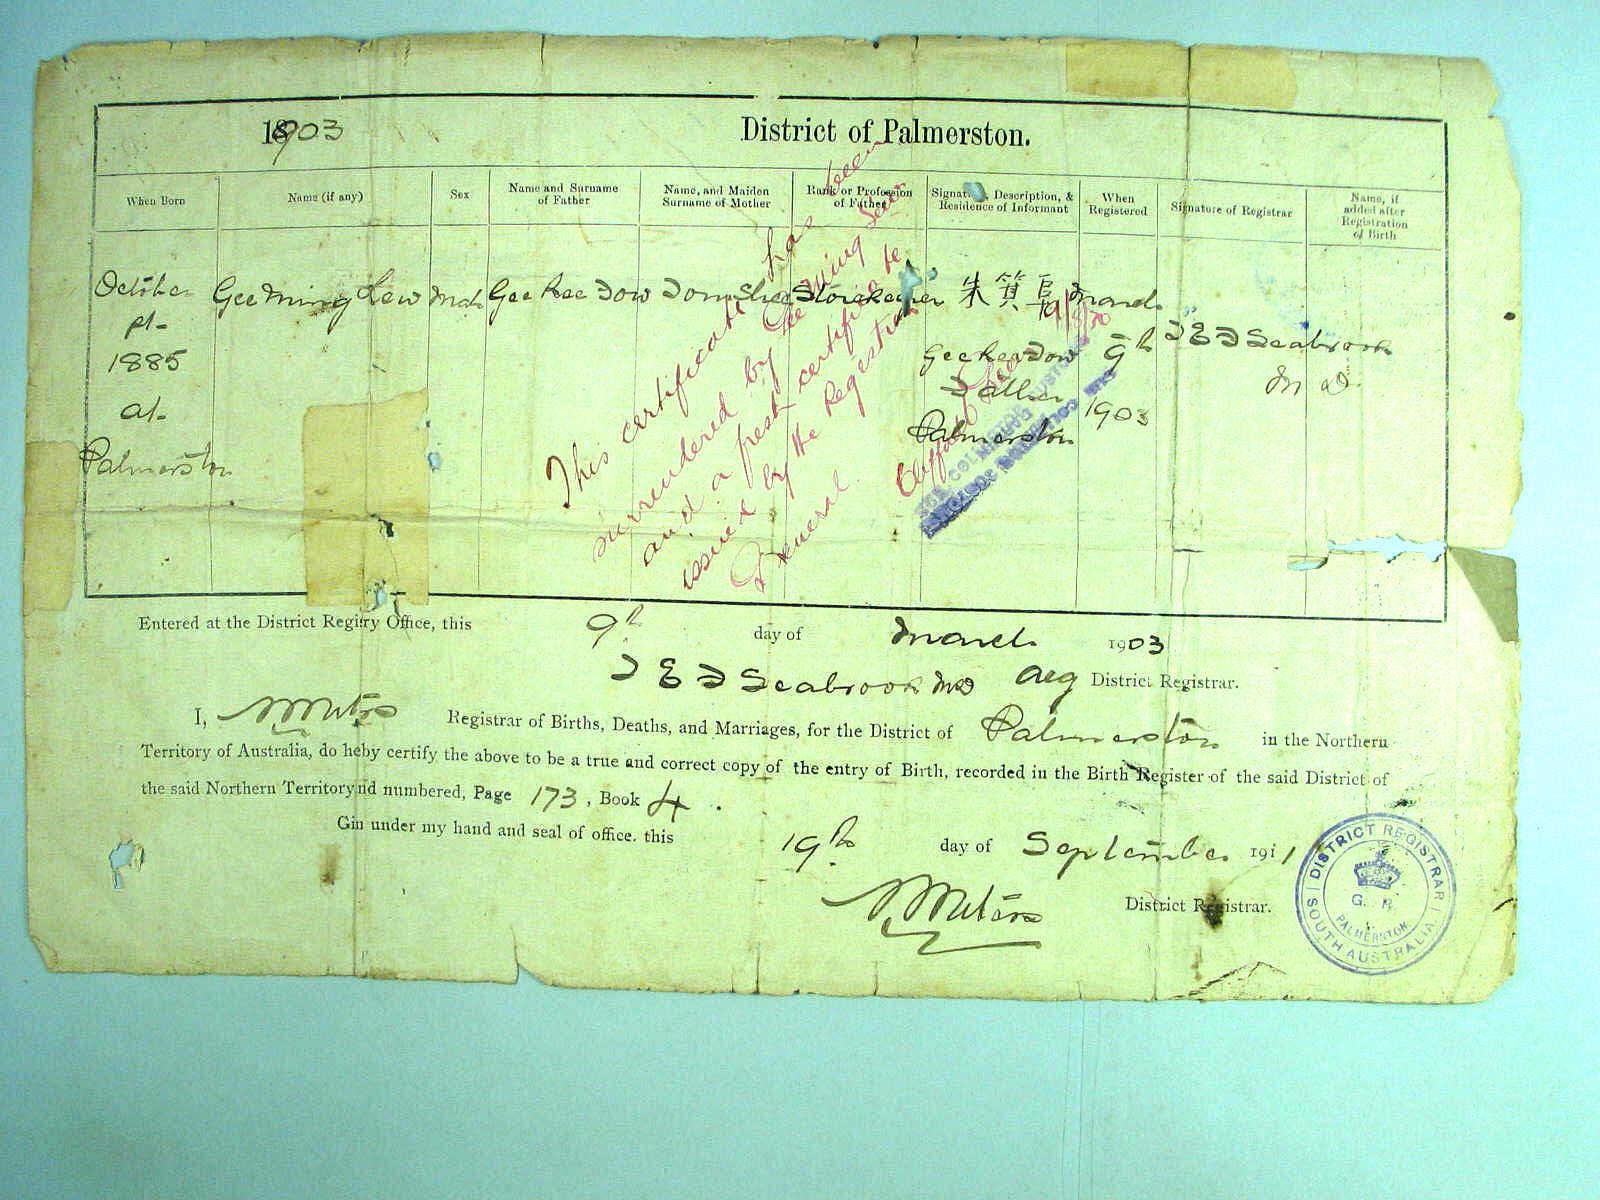 1903
District of Palmerston.
When Born
Name (if any)
Sex
Name and Surname
of Father
Name, and Maiden
Surname of Mother
Rank or Profession
of Father
Signature, Description, &
Residence of Informant
When
Registered
Signature of Registrar
Name, if
added after
Registration
of Birth
October
1st
1885
at
Palmerston
Gee Ming Lew
Male
Gee Kee Dow
Dom Shee
Storekeeper
朱箕阜
Gee Kee Dow
Father
Palmerston
March
9th
1903
T E F Seabrook
M D
This certificate has been
surrendered by Gee Ming
and a fresh certificate
issued by the Registrar
General.
SUB COLLECTOR
Entered at the District Registry Office, this 9th day of March 1903
T E F Seabrook MD Actg District Registrar.
I, Registrar of Births, Deaths, and Marriages, for the District of Palmerston in the Northern
Territory of Australia, do heby certify the above to be a true and correct copy of the entry of Birth, recorded in the Birth Register of the said District of
the said Northern Territory nd numbered, Page 173, Book 4.
Gin under my hand and seal of office. this 19th day of September 1911
District Registrar.
DISTRICT REGISTRAR
G. R.
PALMERSTON
SOUTH AUSTRALIA